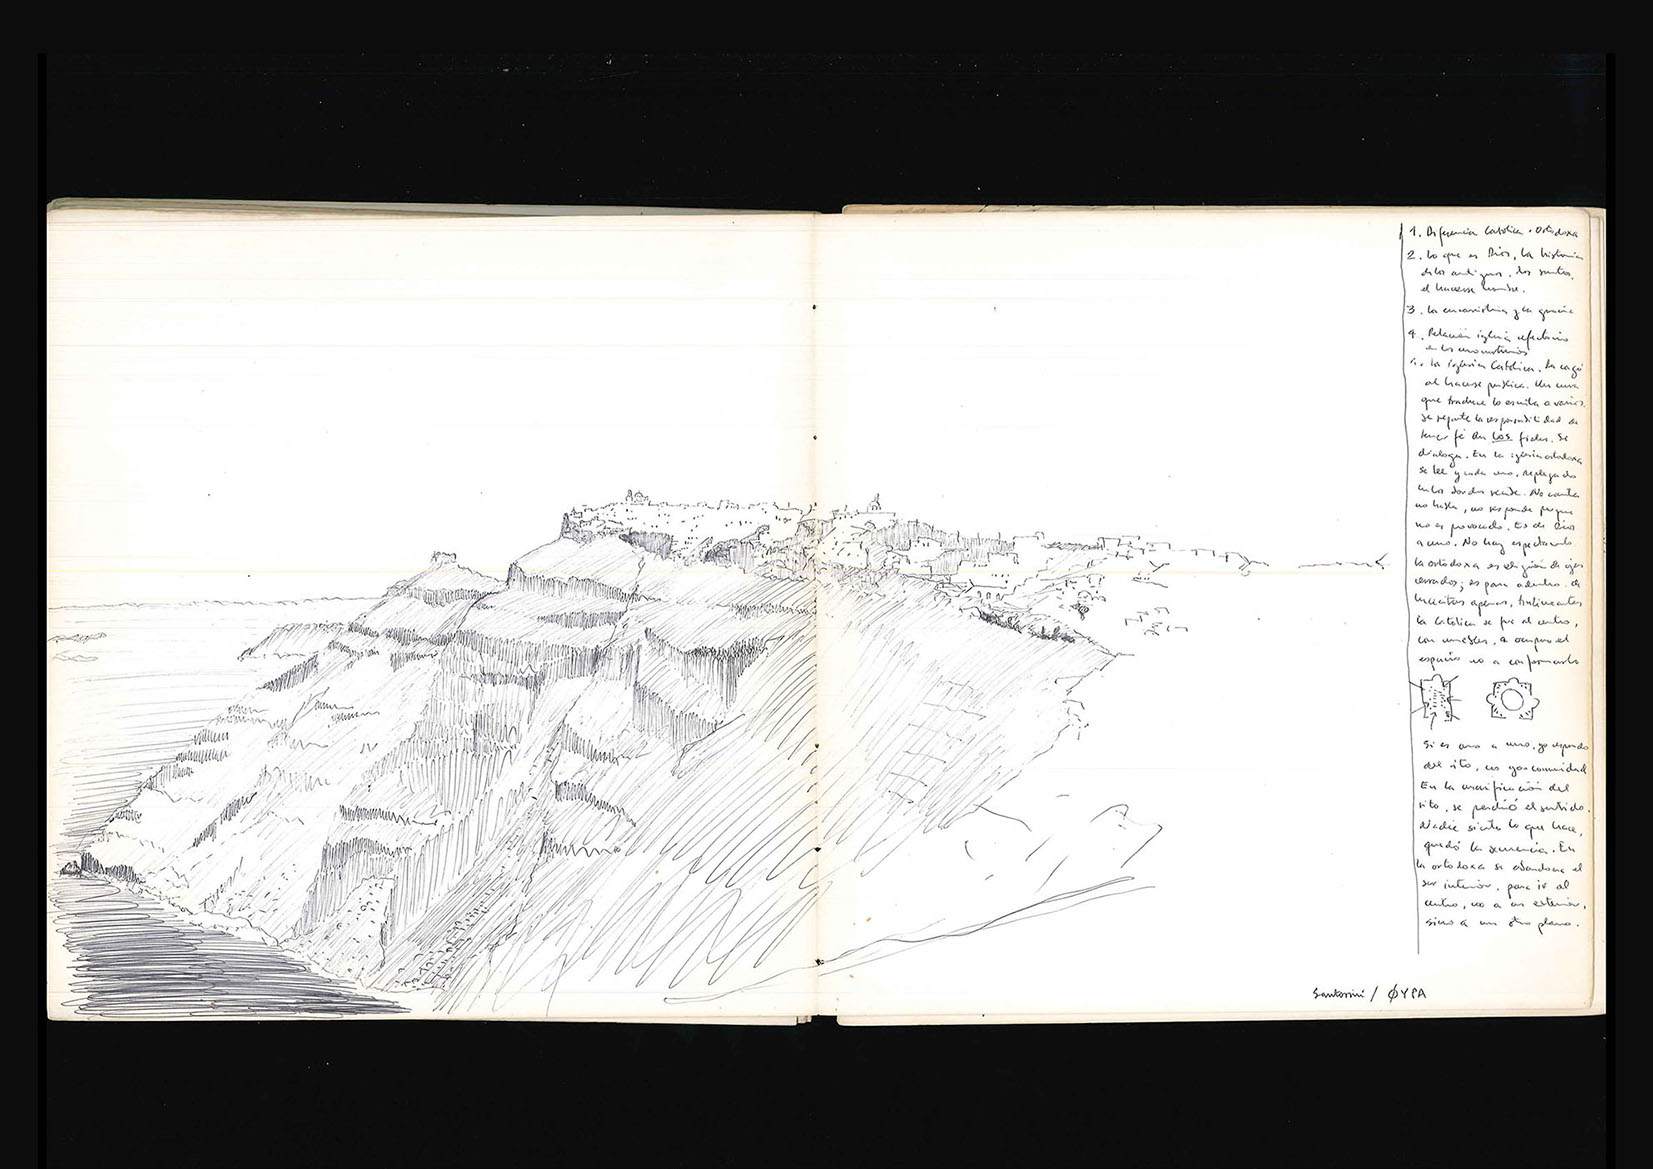 1. Diferencia Católica · Ortodoxa
2. Lo que es Dios, la historia
de los antiguos, los santos,
el hacerse hombre.
3. La eucaristía y la gracia
4. Relación iglesia refectorio
en los monasterios
La iglesia Católica. La cagó
al hacerse pública. Un cura
que traduce lo escrito a varios.
Se reparte la responsabilidad de
tener fé en LOS fieles. Se
dialoga. En la iglesia ortodoxa
se lee y cada uno, replegado
en los bordes siente. No canta
no habla, no responde porque
no es provocado. Es de Dios
a uno. No hay espectáculo
La ortodoxa es religión de ojos
cerrados; es para adentro. de
apenas,
La Católica se fue al centro,
con muebles. A ocupar el
espacio no a conformarlo
Si es uno a uno, yo respondo
del rito, no yo comunidad
En la del
rito, se perdió el sentido.
Nadie siente lo que hace,
quedó la secuencia. En
la ortodoxa se abandona el
ser interior, para ir al
centro, no a un exterior,
sino a un otro plano.
Santorini / ΦΥΡΑ